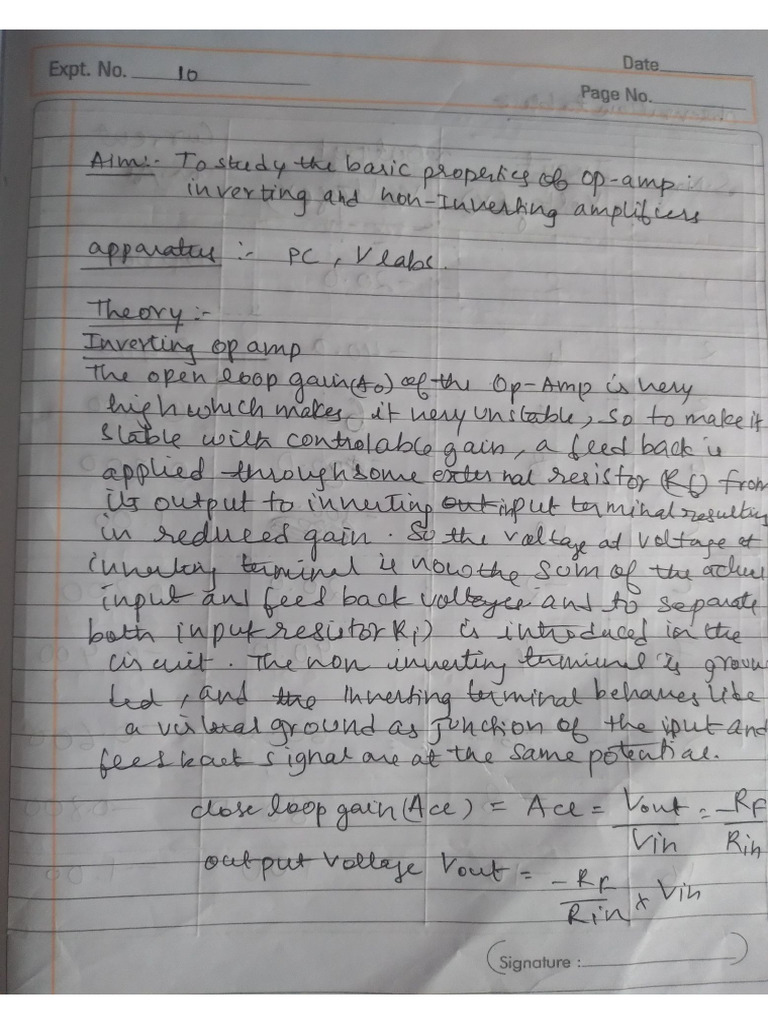 Expt. No. 10
Date
Page No.
Aim:- To study the basic properties of Op-amp :
inverting and non-Inverting amplifiers
apparatus :- PC, Vlabs.
Theory :-
Inverting op amp
The open loop gain(Ao) of the Op-Amp is very
high which makes it very unstable, so to make it
stable with controlable gain, a feed back is
applied through some external resistor (Rf) from
its output to inverting out input terminal resulting
in reduced gain. So the voltage at voltage at
inverting terminal is now the sum of the actual
input and feed back voltages and to separate
both input resistor Ri) is introduced in the
circuit. The non inverting terminal is groun
ded, and the Inverting terminal behaves like
a virtual ground as junction of the iput and
feed back signal are at the same potential.
close loop gain (Ace) = Ace = Vout/Vin = -RF/Rin
output voltage Vout = -RF/Rin x Vin
Signature :